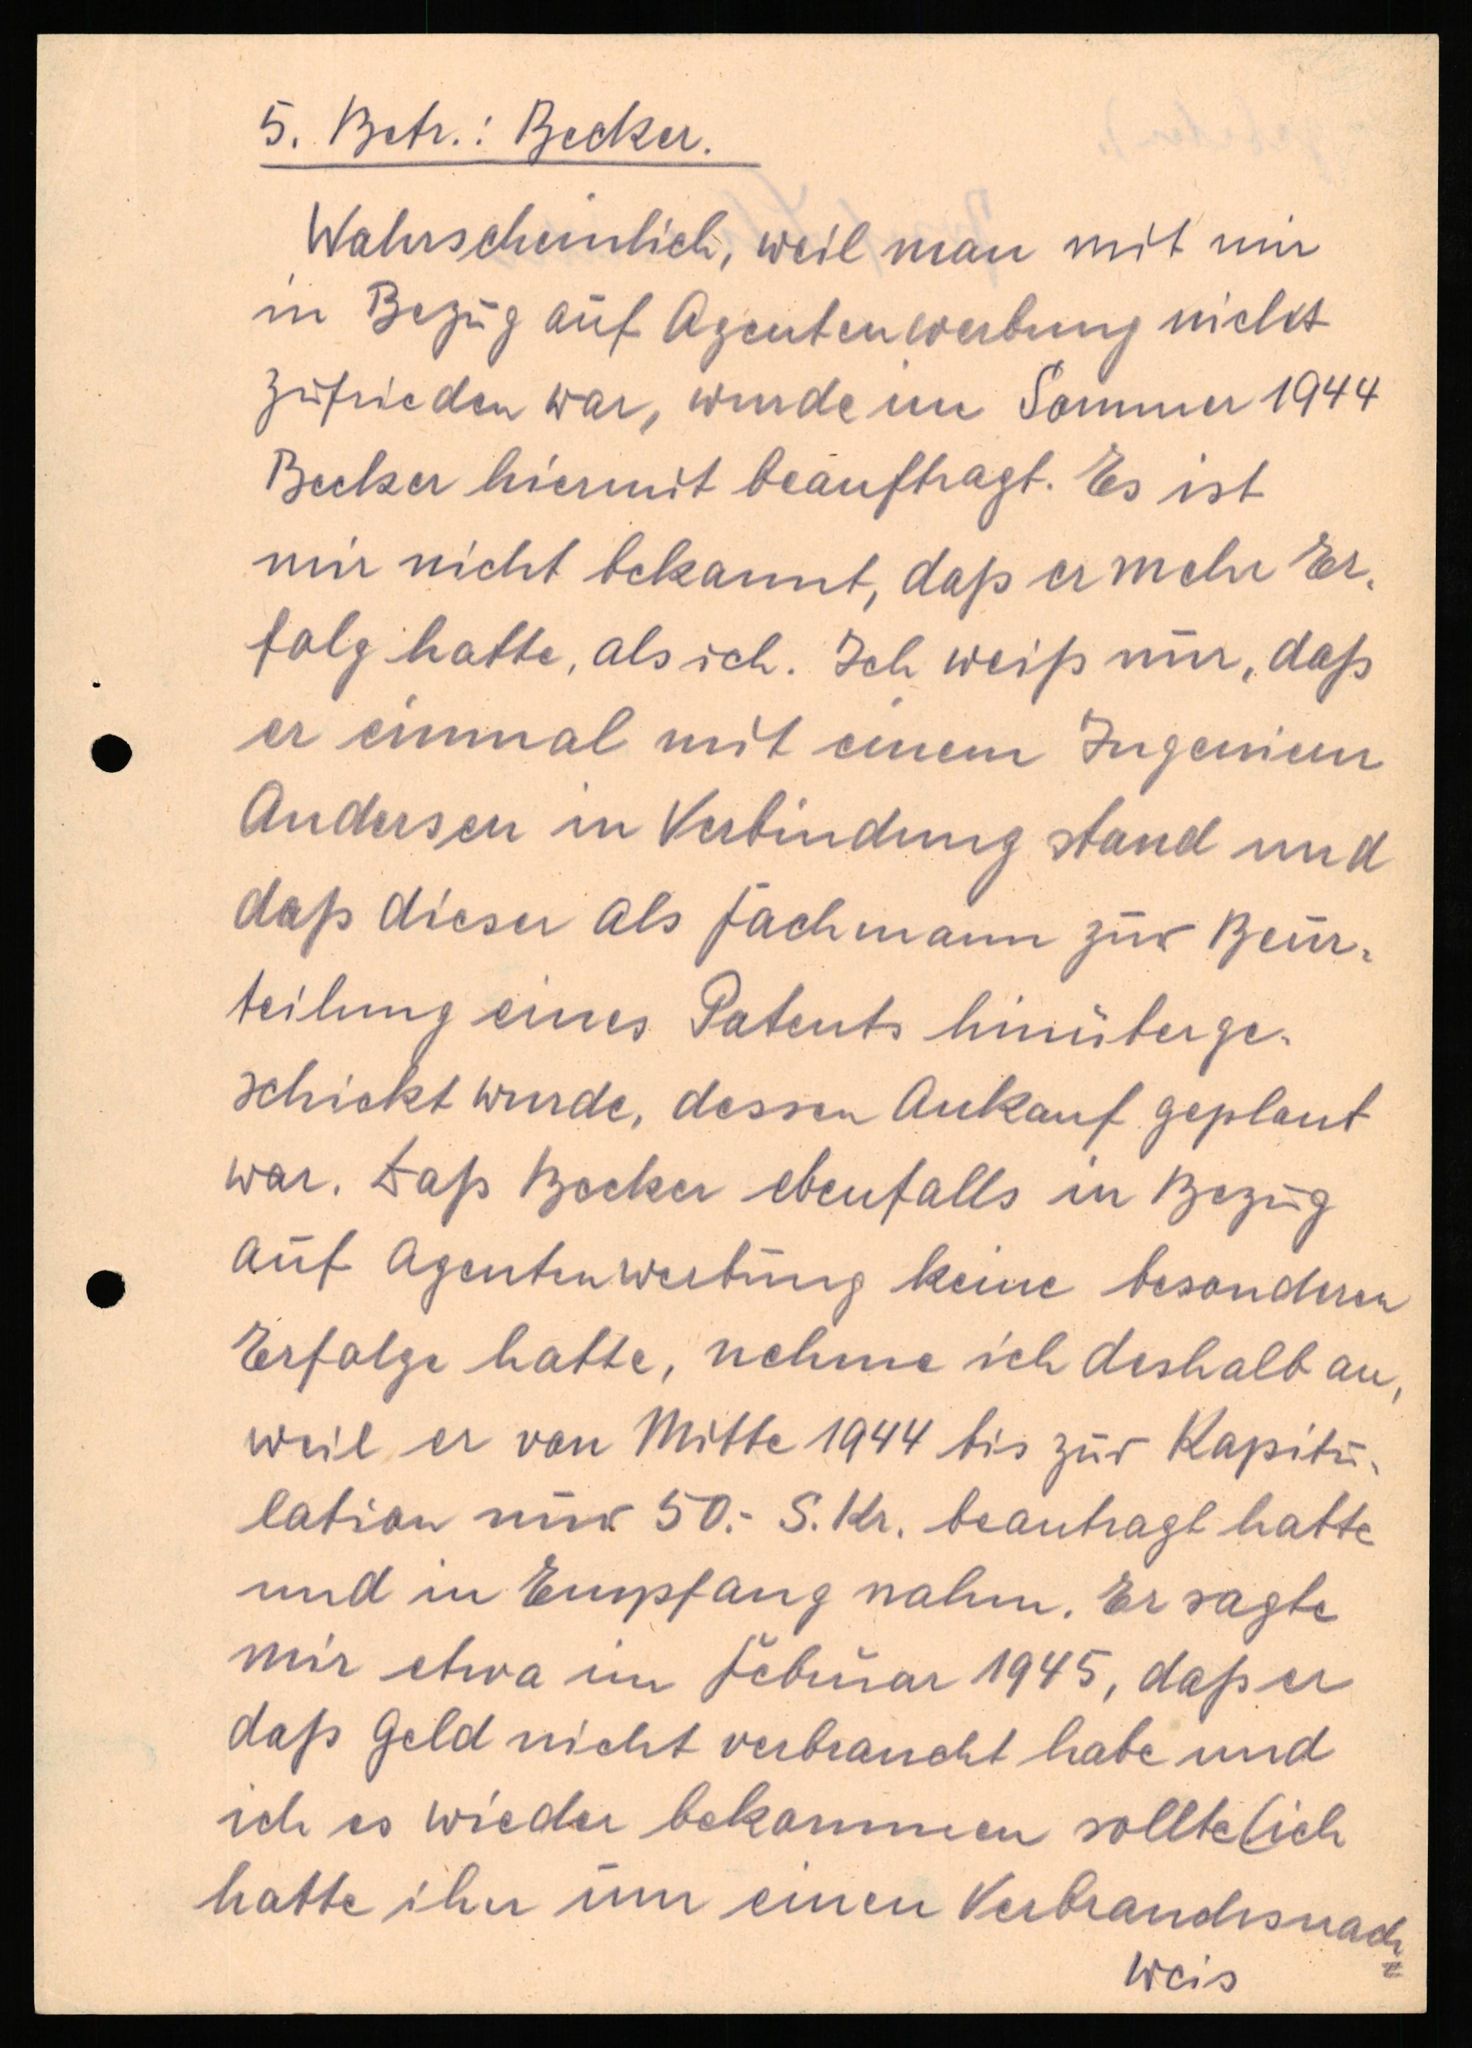 5. Betr.: Becker.
Wahrscheinlich, weil man mit mir
in Bezug auf Agentenwerbung nicht
zufrieden war, wurde im Sommer 1944
Becker hiermit beauftragt. Es ist
mir nicht bekannt, daß er mehr Er-
folg hatte, als ich. Ich weiß nur, daß
er einmal mit einem Ingenieur
Andersen in Verbindung stand und
daß dieser als Fachmann zur Beur-
teilung eines Patents hinüberge-
schickt wurde, dessen Ankauf geplant
war. Daß Becker ebenfalls in Bezug
auf Agentenwerbung keine besonderen
Erfolge hatte, nehme ich deshalb an,
weil er von Mitte 1944 bis zur Kapitu-
lation nur 50.- S. Kr. beantragt hatte
und in Empfang nahm. Er sagte
mir etwa im Februar 1945, daß er
daß Geld nicht verbraucht habe und
ich es wieder bekommen sollte (ich
hatte ihn um einen Verbrauchsnach=
weis